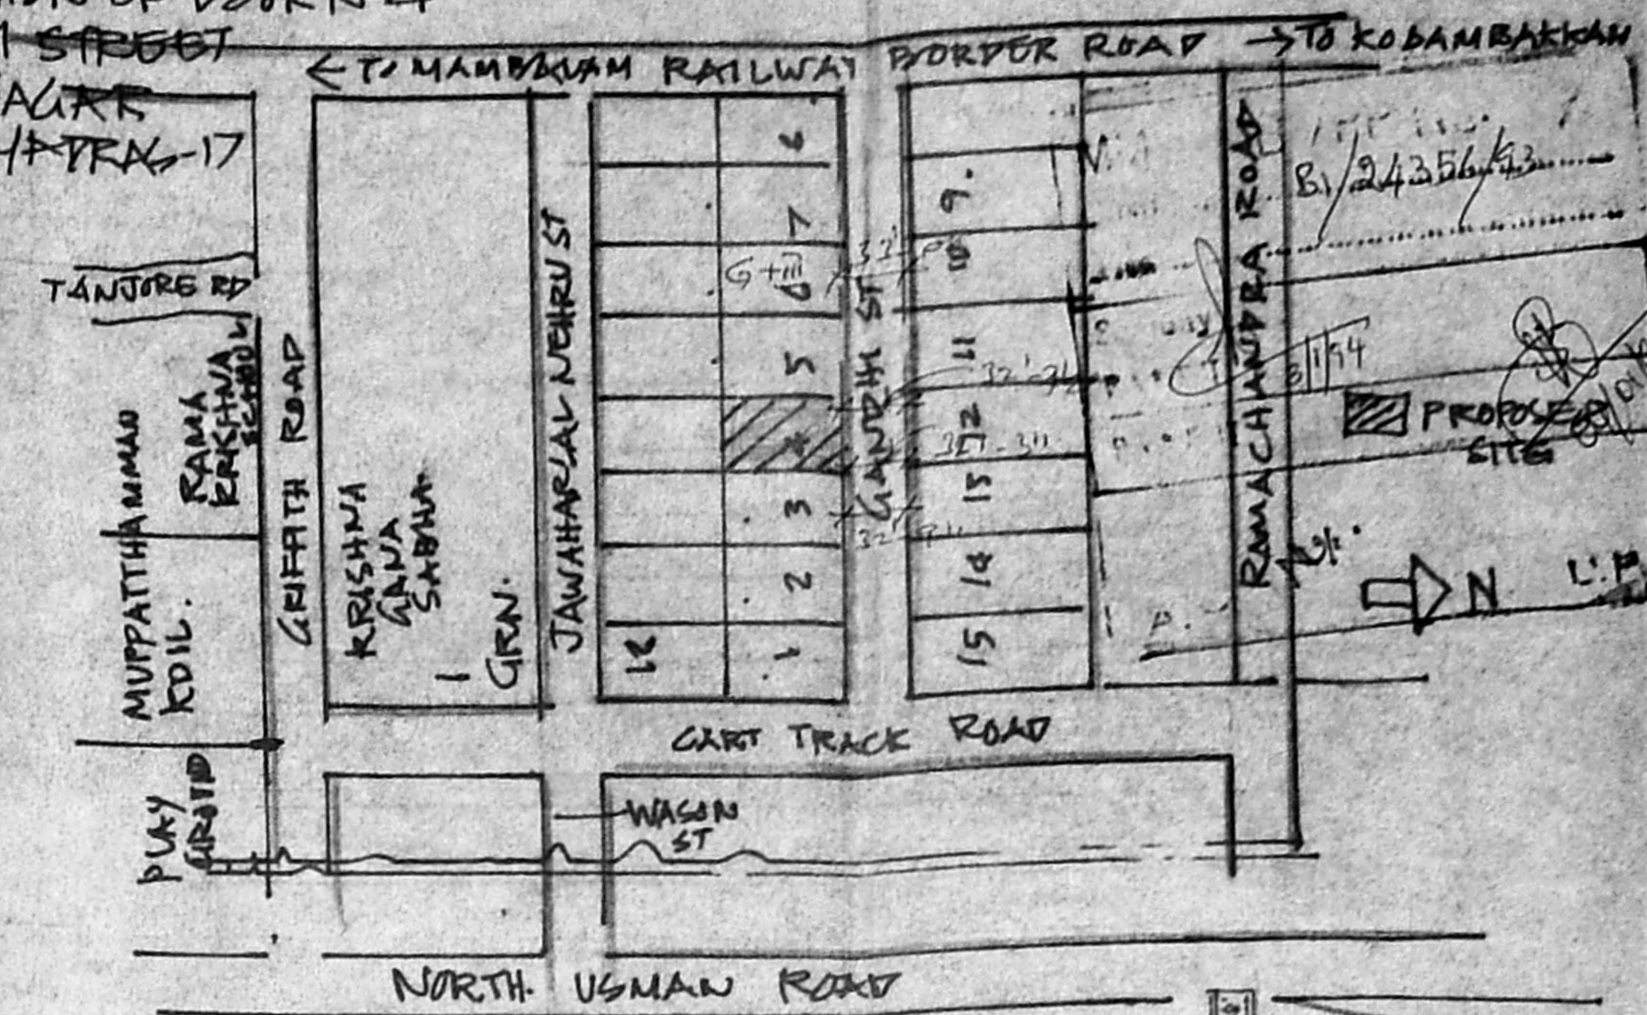 STREET
MADRAS-17
← TO MAMBALAM RAILWAY BORDER ROAD → TO KODAMBAKKAM
TANJORE RD
RAMA
KRISHNA
SCHOOL
MUPPATTHAMMAN
KOIL.
GRIFFATH ROAD
KRISHNA
GANA
SABHA
1 GRN.
JAWAHARLAL NEHRU ST
8
7
G+III
6
5
4
3
2
1
18
GANDHI ST
9.
10
11
12
13
14
15
RAMACHANDRA ROAD
B1/24356/93
3/1/94
PROPOSED
SITE
N
CART TRACK ROAD
PLAY
GROUND
WASAN
ST
NORTH. USMAN ROAD